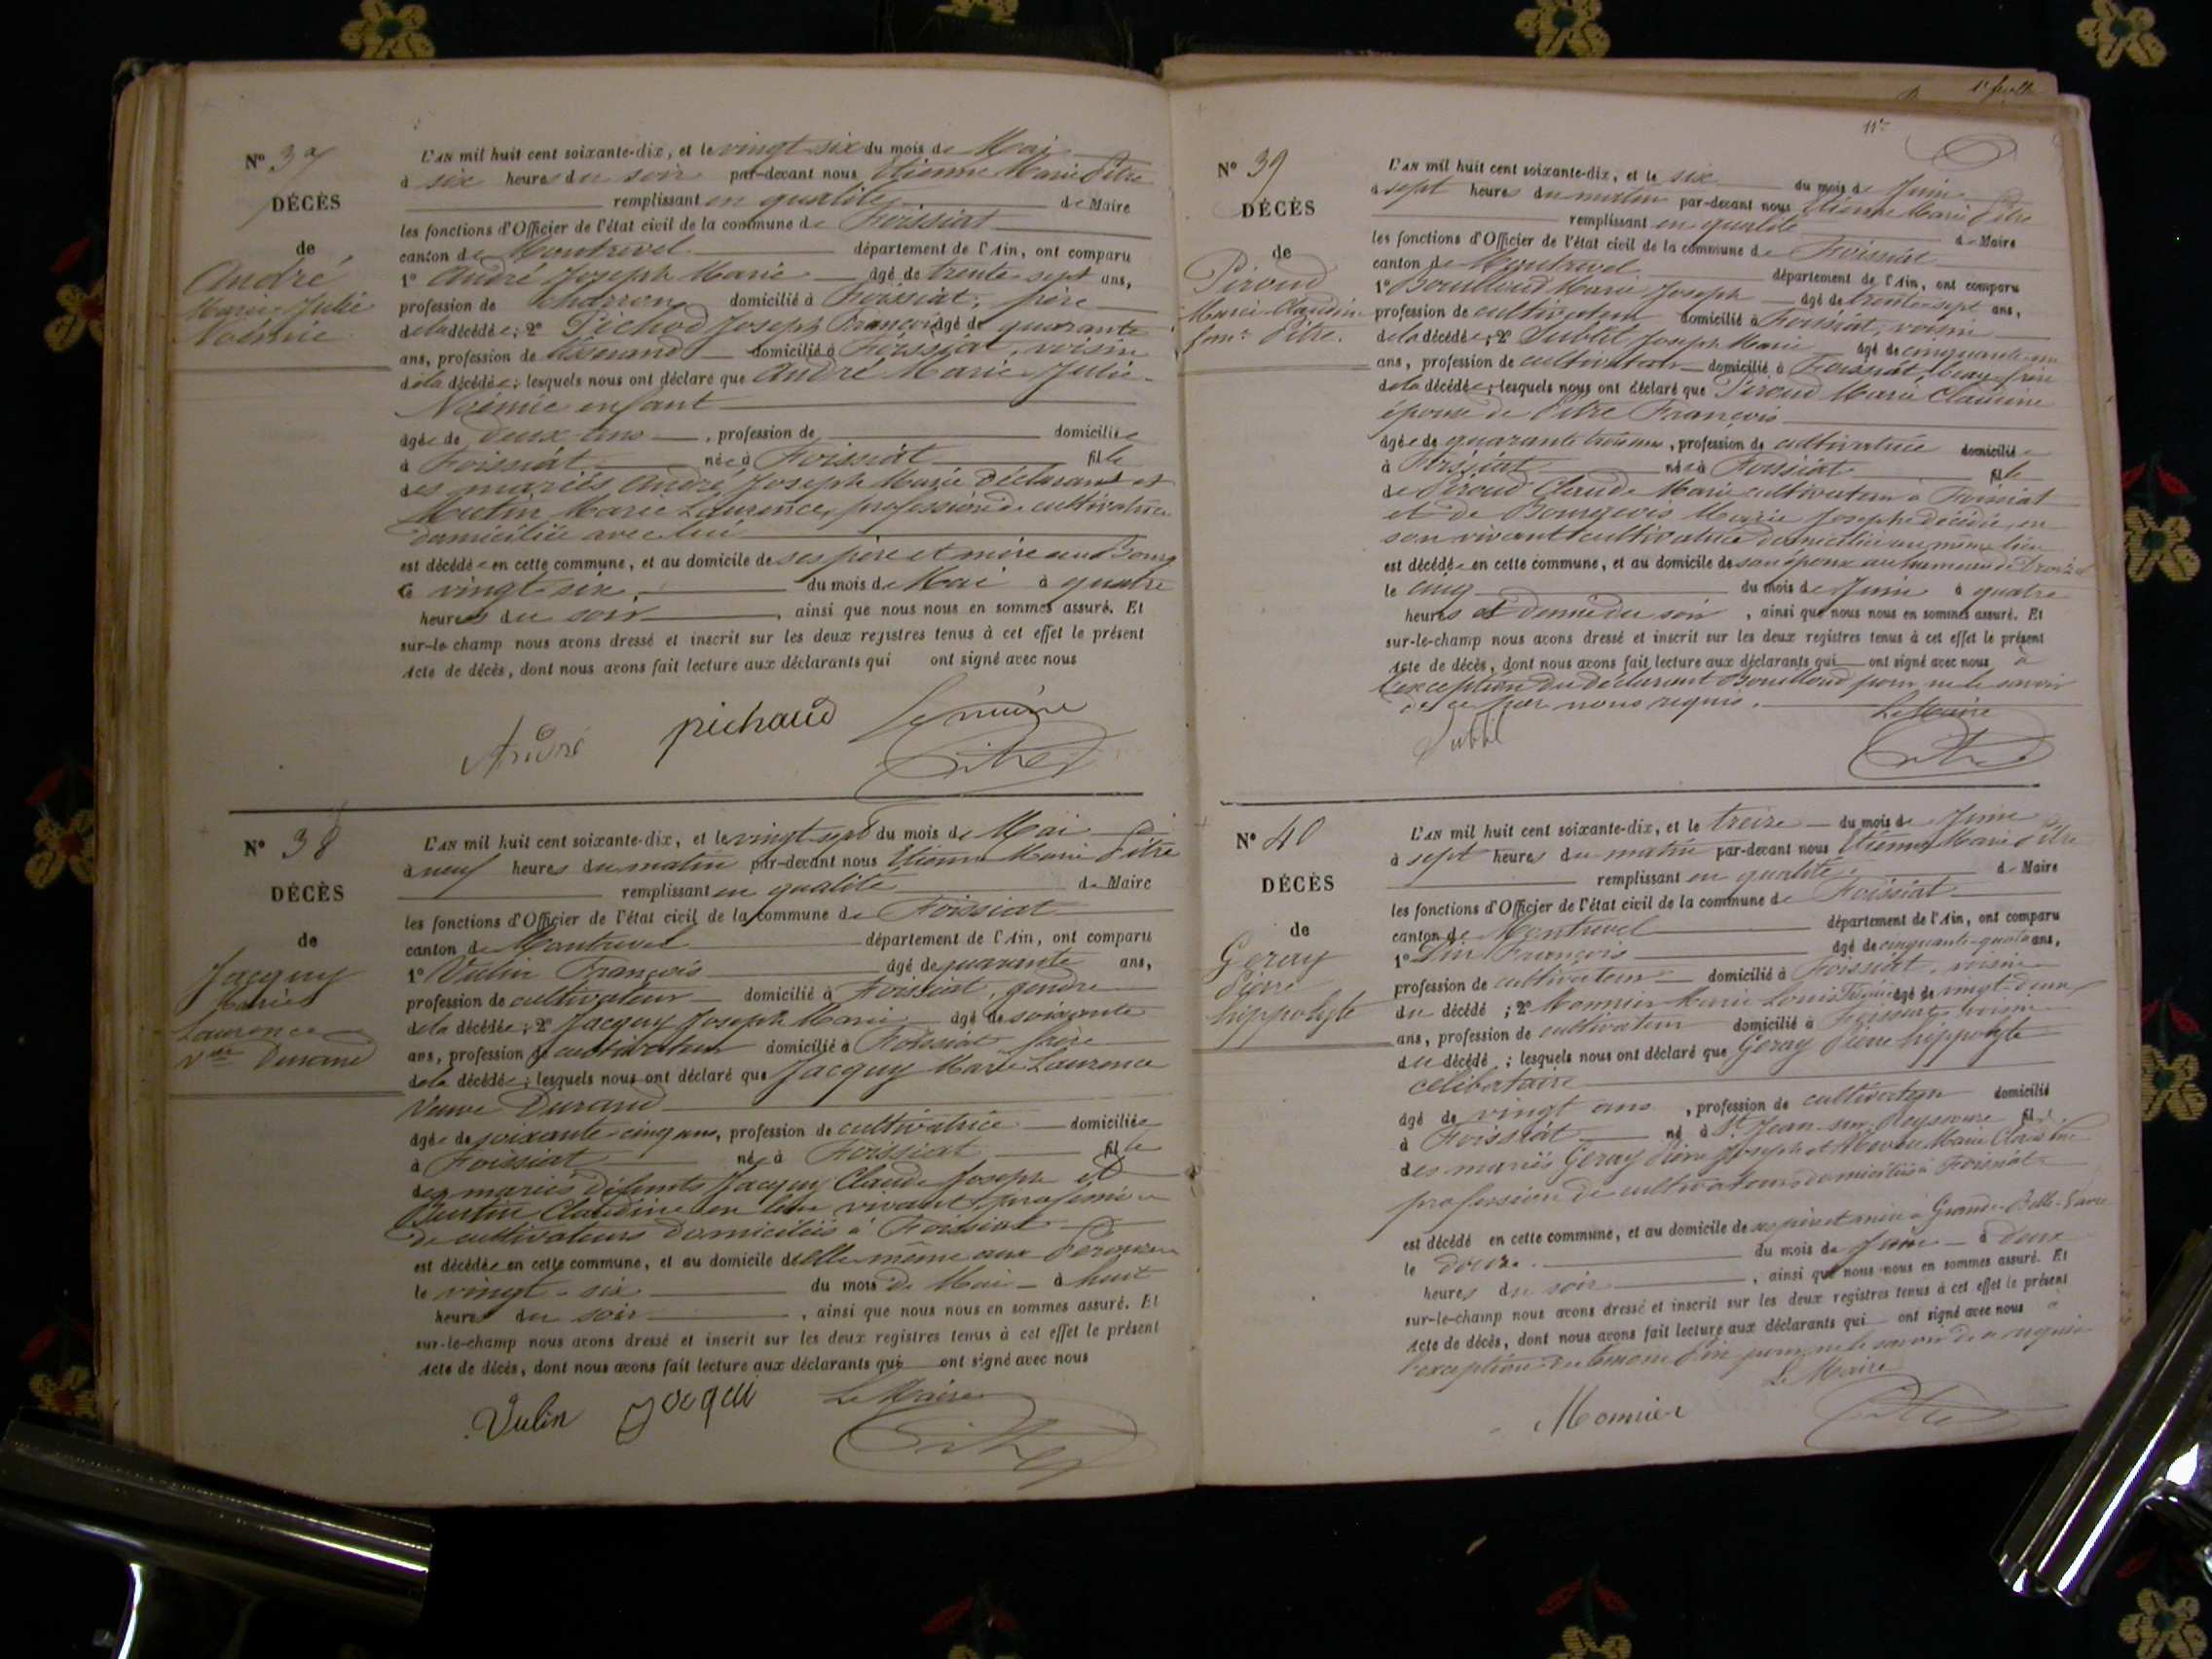 N° 37
DÉCÈS
de
André
Marie Julie
Noémie
L'AN mil huit cent soixante-dix, et le vingt six du mois de Mai
à six heures du soir par-devant nous Etienne Marie Pitre
remplissant en qualité de Maire
les fonctions d'Officier de l'état civil de la commune de Foissiat
canton de Montrevel département de l'Ain, ont comparu
1° André Joseph Marie âgé de trente sept ans,
profession de charron domicilié à Foissiat, père
de la décédée ; 2° Pichod Joseph François âgé de quarante
ans, profession de tisserand domicilié à Foissiat, voisin
de la décédée ; lesquels nous ont déclaré que André Marie Julie
Noémie enfant
âgée de deux ans , profession de domiciliée
à Foissiat née à Foissiat fille
des mariés André Joseph Marie déclarant et
Mutin Marie Laurence, profession de cultivatrice
domiciliée avec lui
est décédée en cette commune, et au domicile de ses père et mère au Bourg
le vingt six du mois de Mai à quatre
heures du soir , ainsi que nous nous en sommes assuré. Et
sur-le champ nous avons dressé et inscrit sur les deux registres tenus à cet effet le présent
Acte de décès, dont nous avons fait lecture aux déclarants qui ont signé avec nous
André pichaud Le maire
Pitre
N° 38
DÉCÈS
de
Jacquy
Marie
Laurence
Vve Durand
L'AN mil huit cent soixante-dix, et le vingt sept du mois de Mai
à neuf heures du matin par-devant nous Etienne Marie Pitre
remplissant en qualité de Maire
les fonctions d'Officier de l'état civil de la commune de Foissiat
canton de Montrevel département de l'Ain, ont comparu
1° Vulin François âgé de quarante ans,
profession de cultivateur domicilié à Foissiat, gendre
de la décédée ; 2° Jacquy Joseph Marie âgé de soixante
ans, profession de cultivateur domicilié à Foissiat frère
de la décédée ; lesquels nous ont déclaré que Jacquy Marie Laurence
Veuve Durand
âgée de soixante-cinq ans, profession de cultivatrice domiciliée
à Foissiat née à Foissiat fille
des mariés défunts Jacquy Claude Joseph et
Claudine en leur vivant profession
de cultivateurs domiciliés à Foissiat
est décédée en cette commune, et au domicile d'elle même aux
le vingt-six du mois de Mai à huit
heures du soir , ainsi que nous nous en sommes assuré. Et
sur-le-champ nous avons dressé et inscrit sur les deux registres tenus à cet effet le présent
Acte de décès, dont nous avons fait lecture aux déclarants qui ont signé avec nous
Vulin Jacqui Le Maire
Pitre
1e feuille
11e
N° 39
DÉCÈS
de
Piroud
Marie Claudine
fme Pitre.
L'AN mil huit cent soixante-dix, et le six du mois de Juin
à sept heures du matin par-devant nous Etienne Marie Pitre
remplissant en qualité de Maire
les fonctions d'Officier de l'état civil de la commune de Foissiat
canton de Montrevel département de l'Ain, ont comparu
1° Bouilloud Marie Joseph âgé de trente-sept ans,
profession de cultivateur domicilié à Foissiat, voisin
de la décédée ; 2° Sublet Joseph Marie âgé de cinquante un
ans, profession de cultivateur domicilié à Foissiat, beau-frère
de la décédée ; lesquels nous ont déclaré que Piroud Marie Claudine
épouse de Pitre François
âgée de quarante trois ans, profession de cultivatrice domiciliée
à Foissiat née à Foissiat fille
de Piroud Claude Marie cultivateur à Foissiat
et de Bourgeois Marie Josephe décédée, en
son vivant cultivatrice domiciliée au même lieu
est décédée en cette commune, et au domicile de son époux au hameau de
le cinq du mois de Juin à quatre
heures et demie du soir , ainsi que nous nous en sommes assuré. Et
sur-le-champ nous avons dressé et inscrit sur les deux registres tenus à cet effet le présent
Acte de décès, dont nous avons fait lecture aux déclarants qui ont signé avec nous à
l'exception du déclarant Bouilloud pour ne le savoir
de ce par nous requis.
Le Maire
Sublet
Pitre
N° 40
DÉCÈS
de
Geray
Pierre
hippolyte
L'AN mil huit cent soixante-dix, et le treize du mois de Juin
à sept heures du matin par-devant nous Etienne Marie Pitre
remplissant en qualité de Maire
les fonctions d'Officier de l'état civil de la commune de Foissiat
canton de Montrevel département de l'Ain, ont comparu
1° Pin François âgé de cinquante-quatre ans,
profession de cultivateur domicilié à Foissiat, voisin
du décédé ; 2° Monnier Marie Louis âgé de vingt-deux
ans, profession de cultivateur domicilié à Foissiat voisin
du décédé ; lesquels nous ont déclaré que Geray Pierre hippolyte
célibataire
âgé de vingt ans , profession de cultivateur domicilié
à Foissiat né à St Jean-sur-Reyssouze fils
des mariés Geray Pierre Joseph et Marie Claudine
profession de cultivateurs domiciliés à Foissiat
est décédé en cette commune, et au domicile de ses père et mère à Grande-Belle-Vavre
le douze du mois de Juin à deux
heures du soir , ainsi que nous nous en sommes assuré. Et
sur-le-champ nous avons dressé et inscrit sur les deux registres tenus à cet effet le présent
Acte de décès, dont nous avons fait lecture aux déclarants qui ont signé avec nous à
l'exception du témoin Pin pour ne le savoir de ce requis
Le Maire
Monnier
Pitre